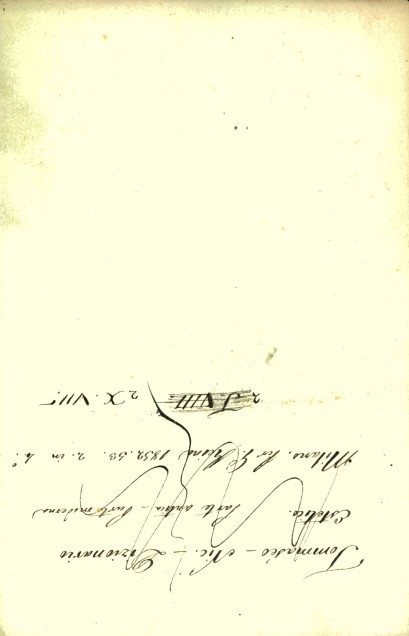 Tommaséo - Nic. - Dizionario
Estetico. Parte antica - Parte moderna
Milano. Per G. Reina 1852.53. 2. in 4.°
2 J. VIII 2 X. VII.